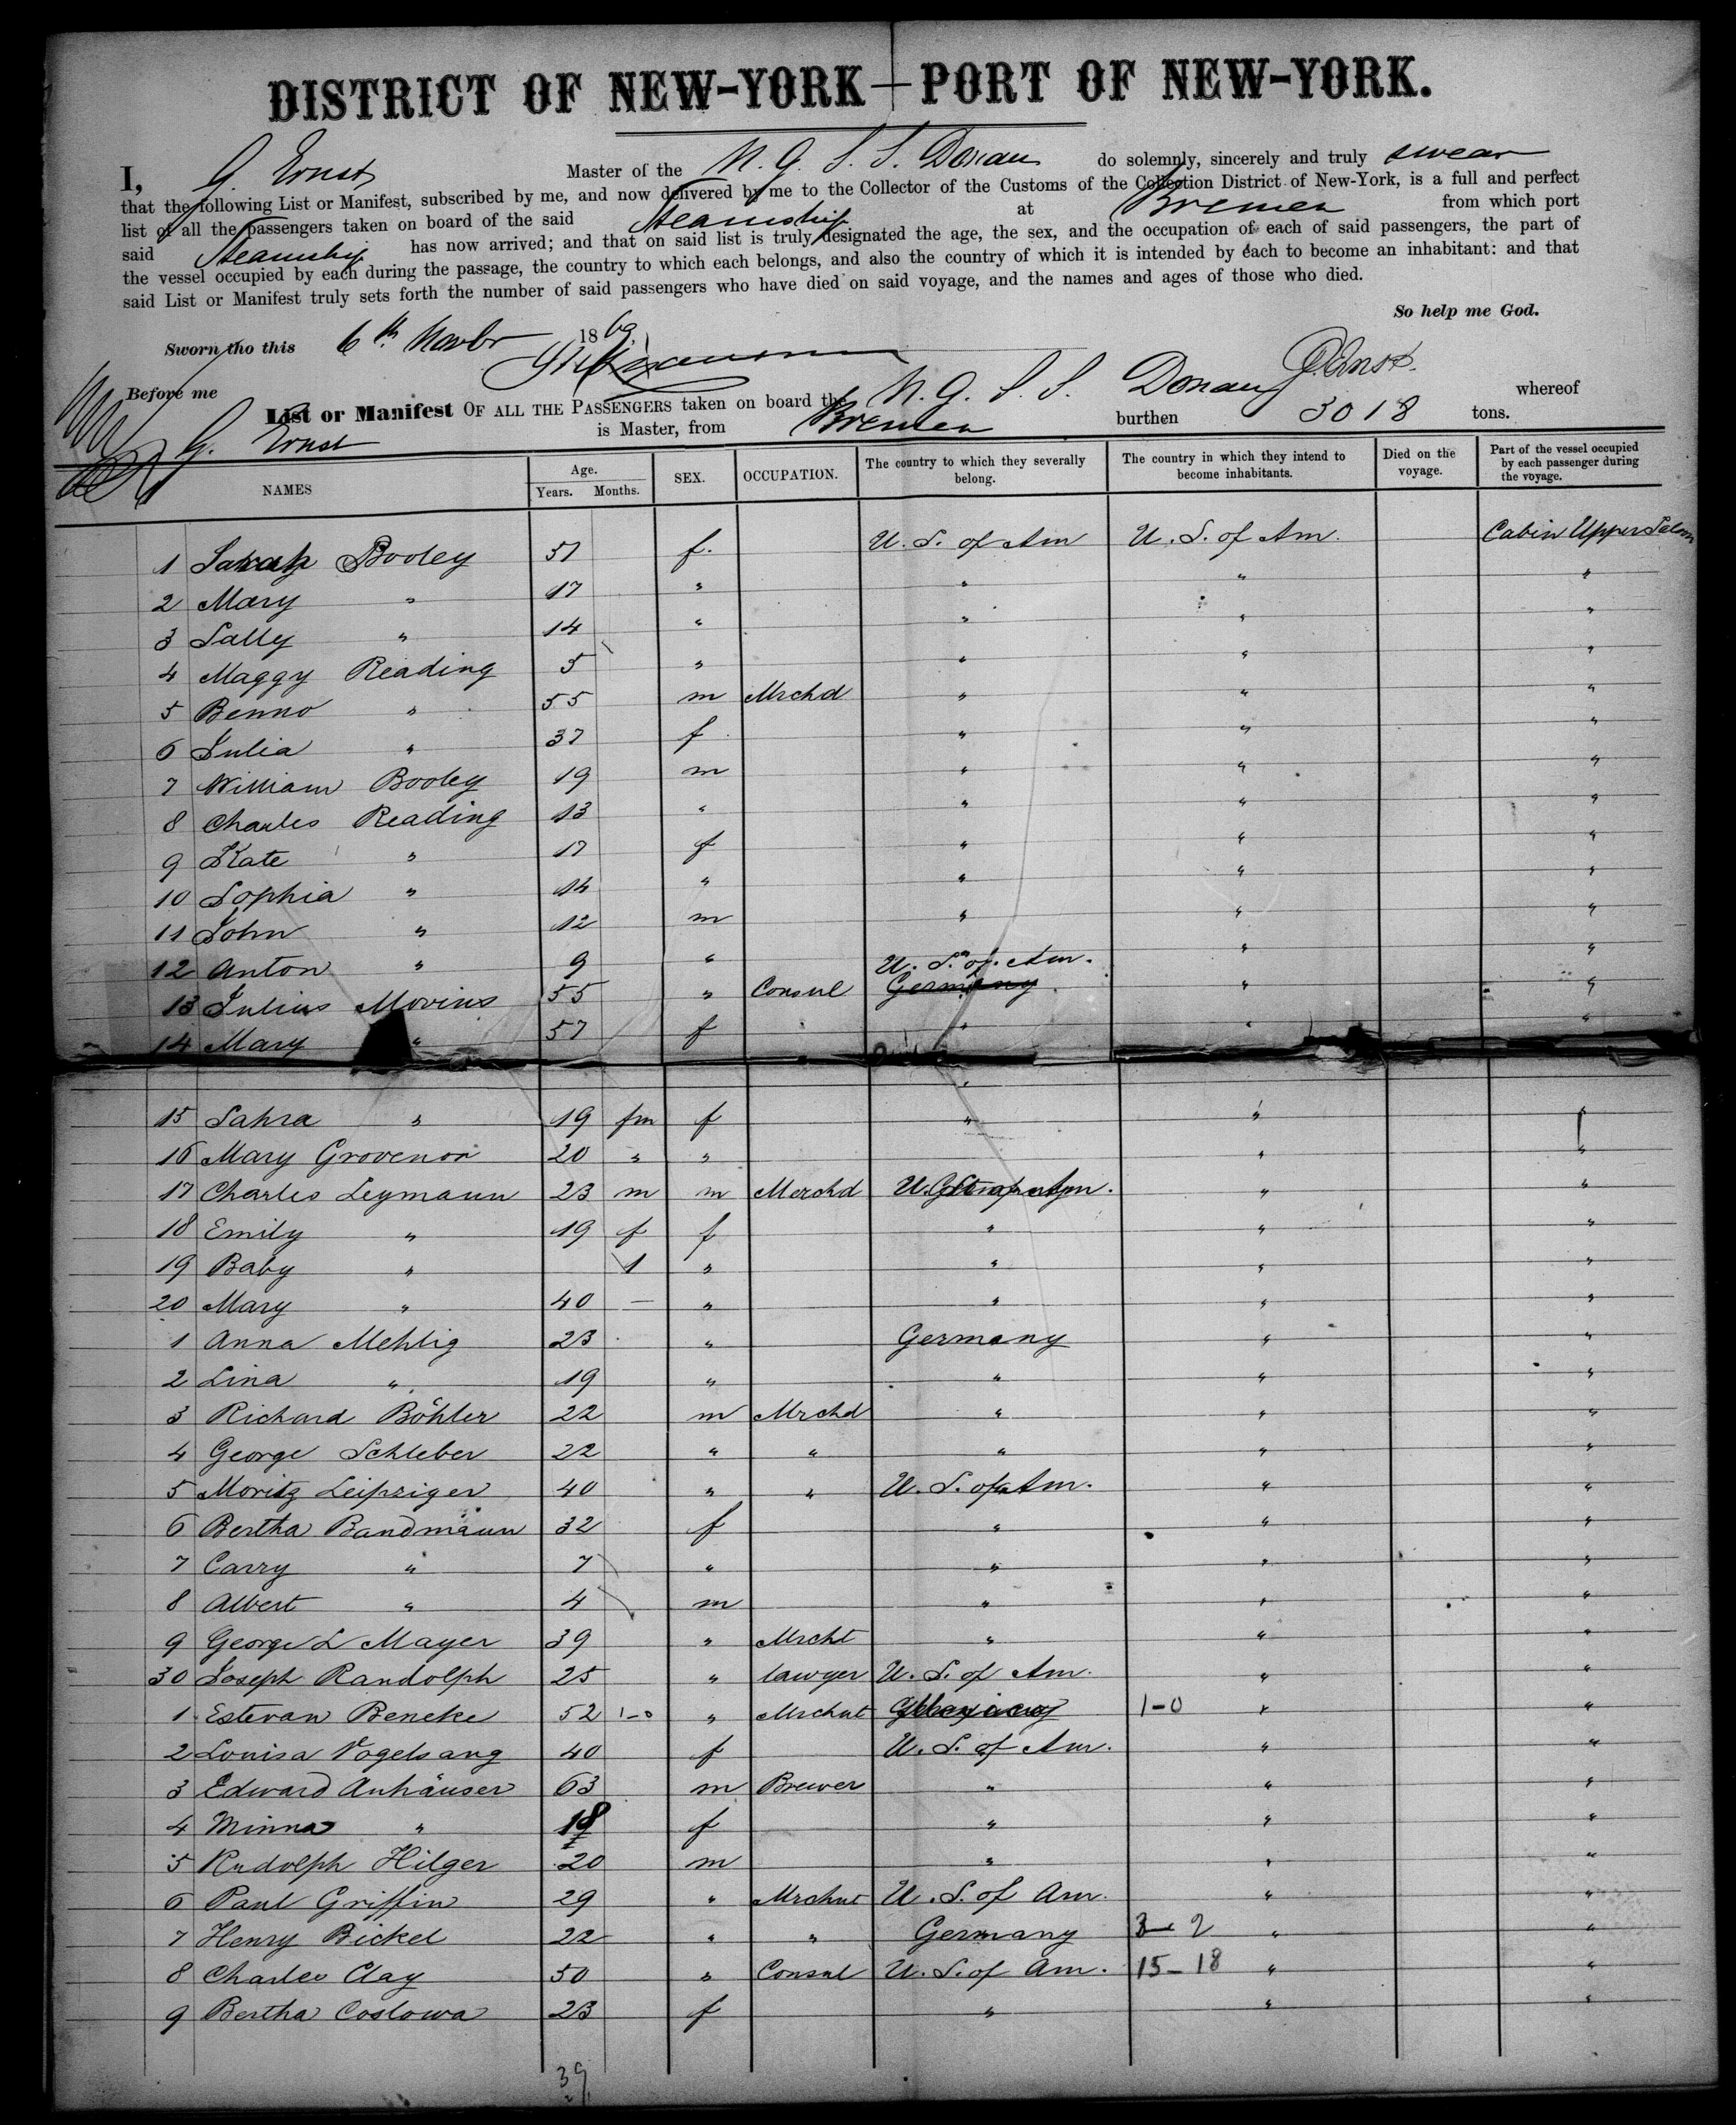 DISTRICT OF NEW-YORK—PORT OF NEW-YORK.
I, G. Ernst Master of the N. G. S. S. Donau do solemnly, sincerely and truly swear
that the following List or Manifest, subscribed by me, and now delivered by me to the Collector of the Customs of the Collection District of New-York, is a full and perfect
list of all the passengers taken on board of the said Steamship at Bremen from which port
said Steamship has now arrived; and that on said list is truly designated the age, the sex, and the occupation of each of said passengers, the part of
the vessel occupied by each during the passage, the country to which each belongs, and also the country of which it is intended by each to become an inhabitant: and that
said List or Manifest truly sets forth the number of said passengers who have died on said voyage, and the names and ages of those who died.
So help me God.
Sworn tho this 6th Novbr 1869.
Before me G. Ernst.
List or Manifest OF ALL THE PASSENGERS taken on board the N. G. S. S. Donau whereof
G. Ernst is Master, from Bremen burthen 3018 tons.
NAMES Age. Years. Months. SEX. OCCUPATION. The country to which they severally belong. The country in which they intend to become inhabitants. Died on the voyage. Part of the vessel occupied by each passenger during the voyage.
1 Sarah Booley 51 f. U. S. of Am U. S. of Am. Cabin Upper Saloon
2 Mary " 17 " " " "
3 Sally " 14 " " " "
4 Maggy Reading 5 " " " "
5 Benno " 55 m Mrchd " " "
6 Julia " 37 f " " "
7 William Booley 19 m " " "
8 Charles Reading 13 " " " "
9 Kate " 17 f " " "
10 Sophia " 14 " " " "
11 John " 12 m " " "
12 Anton " 9 " " " "
13 Julius Movius 55 " Consul U. S. of Am. Germany " "
14 Mary " 57 f " " "
15 Sahra " 19 fm f " " "
16 Mary Grovenor 20 " " " "
17 Charles Leymann 23 m m Merchd U. S. of Am. " "
18 Emily " 19 f f " " "
19 Baby " 1 " " " "
20 Mary " 40 — " " " "
1 Anna Mehlig 23 " Germany " "
2 Lina " 19 " " " "
3 Richard Böhler 22 m Mrchd " " "
4 George Schleber 22 " " " " "
5 Moritz Leipziger 40 " " U. S. of Am. " "
6 Bertha Bandmann 32 f " " "
7 Carry " 7 " " " "
8 Albert " 4 m " " "
9 George L Mayer 39 " Mrcht " " "
30 Joseph Randolph 25 " lawyer U. S. of Am. " "
1 Estevan Beneke 52 1-0 " Mrchnt 1-0 " "
2 Louisa Vogelsang 40 f U. S. of Am. " "
3 Edward Anhäuser 63 m Brewer " " "
4 Minna " 18 f " " "
5 Rudolph Hilger 20 m " " "
6 Paul Griffin 29 " Mrchnt U. S. of Am. " "
7 Henry Bickel 22 " " Germany 3-2 " "
8 Charles Clay 50 " Consul U. S. of Am. 15-18 " "
9 Bertha Coslowa 23 f " " "
39